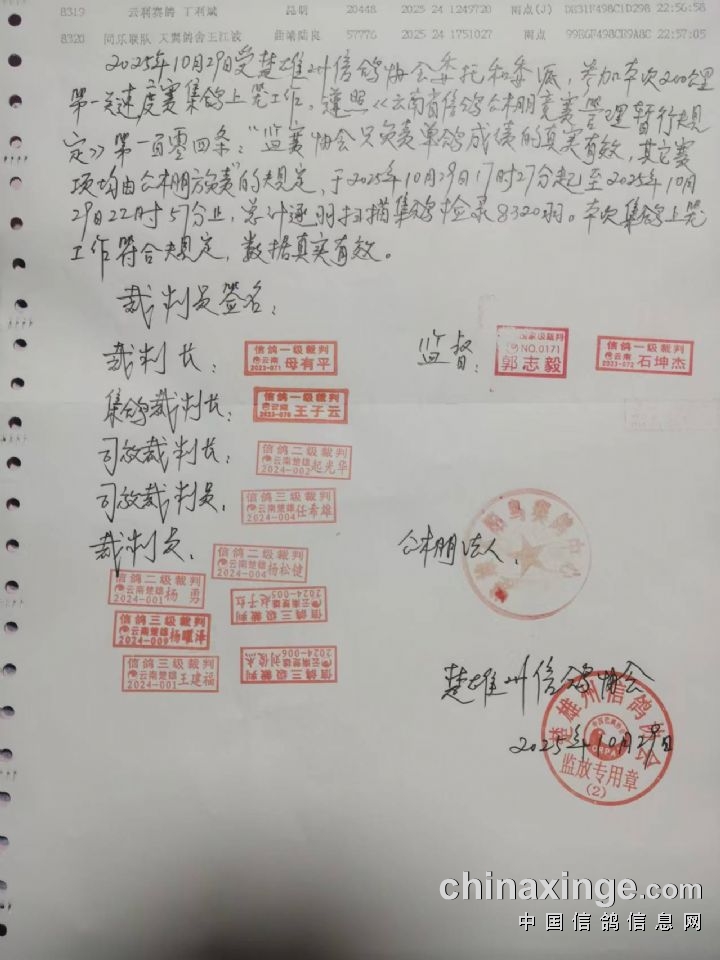 8319 云利赛鸽 丁利斌 昆明 20448 2025 24 1249720 雨点(J) DB31F498C1D298 22:56:58
8320 同乐联队 天翼鸽舍王江波 曲靖陆良 57776 2025 24 1751027 雨点 22:57:05
2025年10月29日受楚雄州信鸽协会委托和委派，参加本次200公里
第一关速度赛集鸽上笼工作。遵照《云南省信鸽公棚竞赛管理暂行规
定》第一百零四条："监赛协会只负责单鸽成绩的真实有效，其它赛
项均由公棚方负责"的规定，于2025年10月29日17时27分起至2025年10月
29日22时57分止，总计逐羽扫描集鸽检录8320羽。本次集鸽上笼
工作符合规定，数据真实有效。
裁判员签名：
裁判长：
信鸽一级裁判
云南
2023-071 母有平
监督：
国家级裁判
NO.0171
郭志毅
信鸽一级裁判
云南
2023-072 石坤杰
集鸽裁判长：
信鸽一级裁判
云南
2023-070 王子云
司放裁判长：
信鸽二级裁判
云南楚雄
2024-002 起光华
司放裁判员：
信鸽三级裁判
云南楚雄
2024-004 任希雄
裁判员：
信鸽二级裁判
云南楚雄
2024-004 杨松健
公棚法人：
信鸽二级裁判
云南楚雄
2024-001 杨勇
信鸽三级裁判
云南楚雄
2024-005
信鸽三级裁判
云南楚雄
2024-009 杨曜泽
信鸽三级裁判
云南楚雄
2024-006
信鸽三级裁判
云南楚雄
2024-001 王建福
楚雄州信鸽协会
楚雄州信鸽协会
2025年10月29日
监放专用章
(2)
chinaxinge.com
中国信鸽信息网